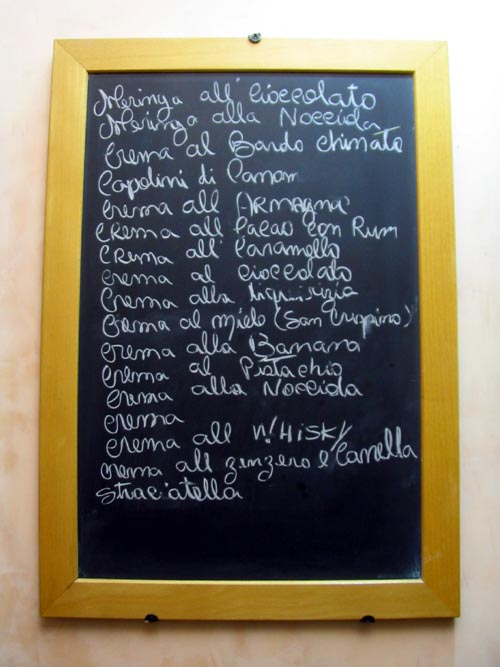 Meringa all' Cioccolato
Meringa alla Nocciola
Crema al Bardo chinato
Capolini di
Crema all' ARMAGNA'
CREMA all' Cacao con Rum
CREMA all' Caramello
Crema al cioccolato
Crema alla liquirizia
Crema al miele (San Cuppino)
crema alla Banana
Crema al Pistachio
Crema alla Nocciola
crema
Crema all WHiSKY
crema all zenzero e Canella
straciatella